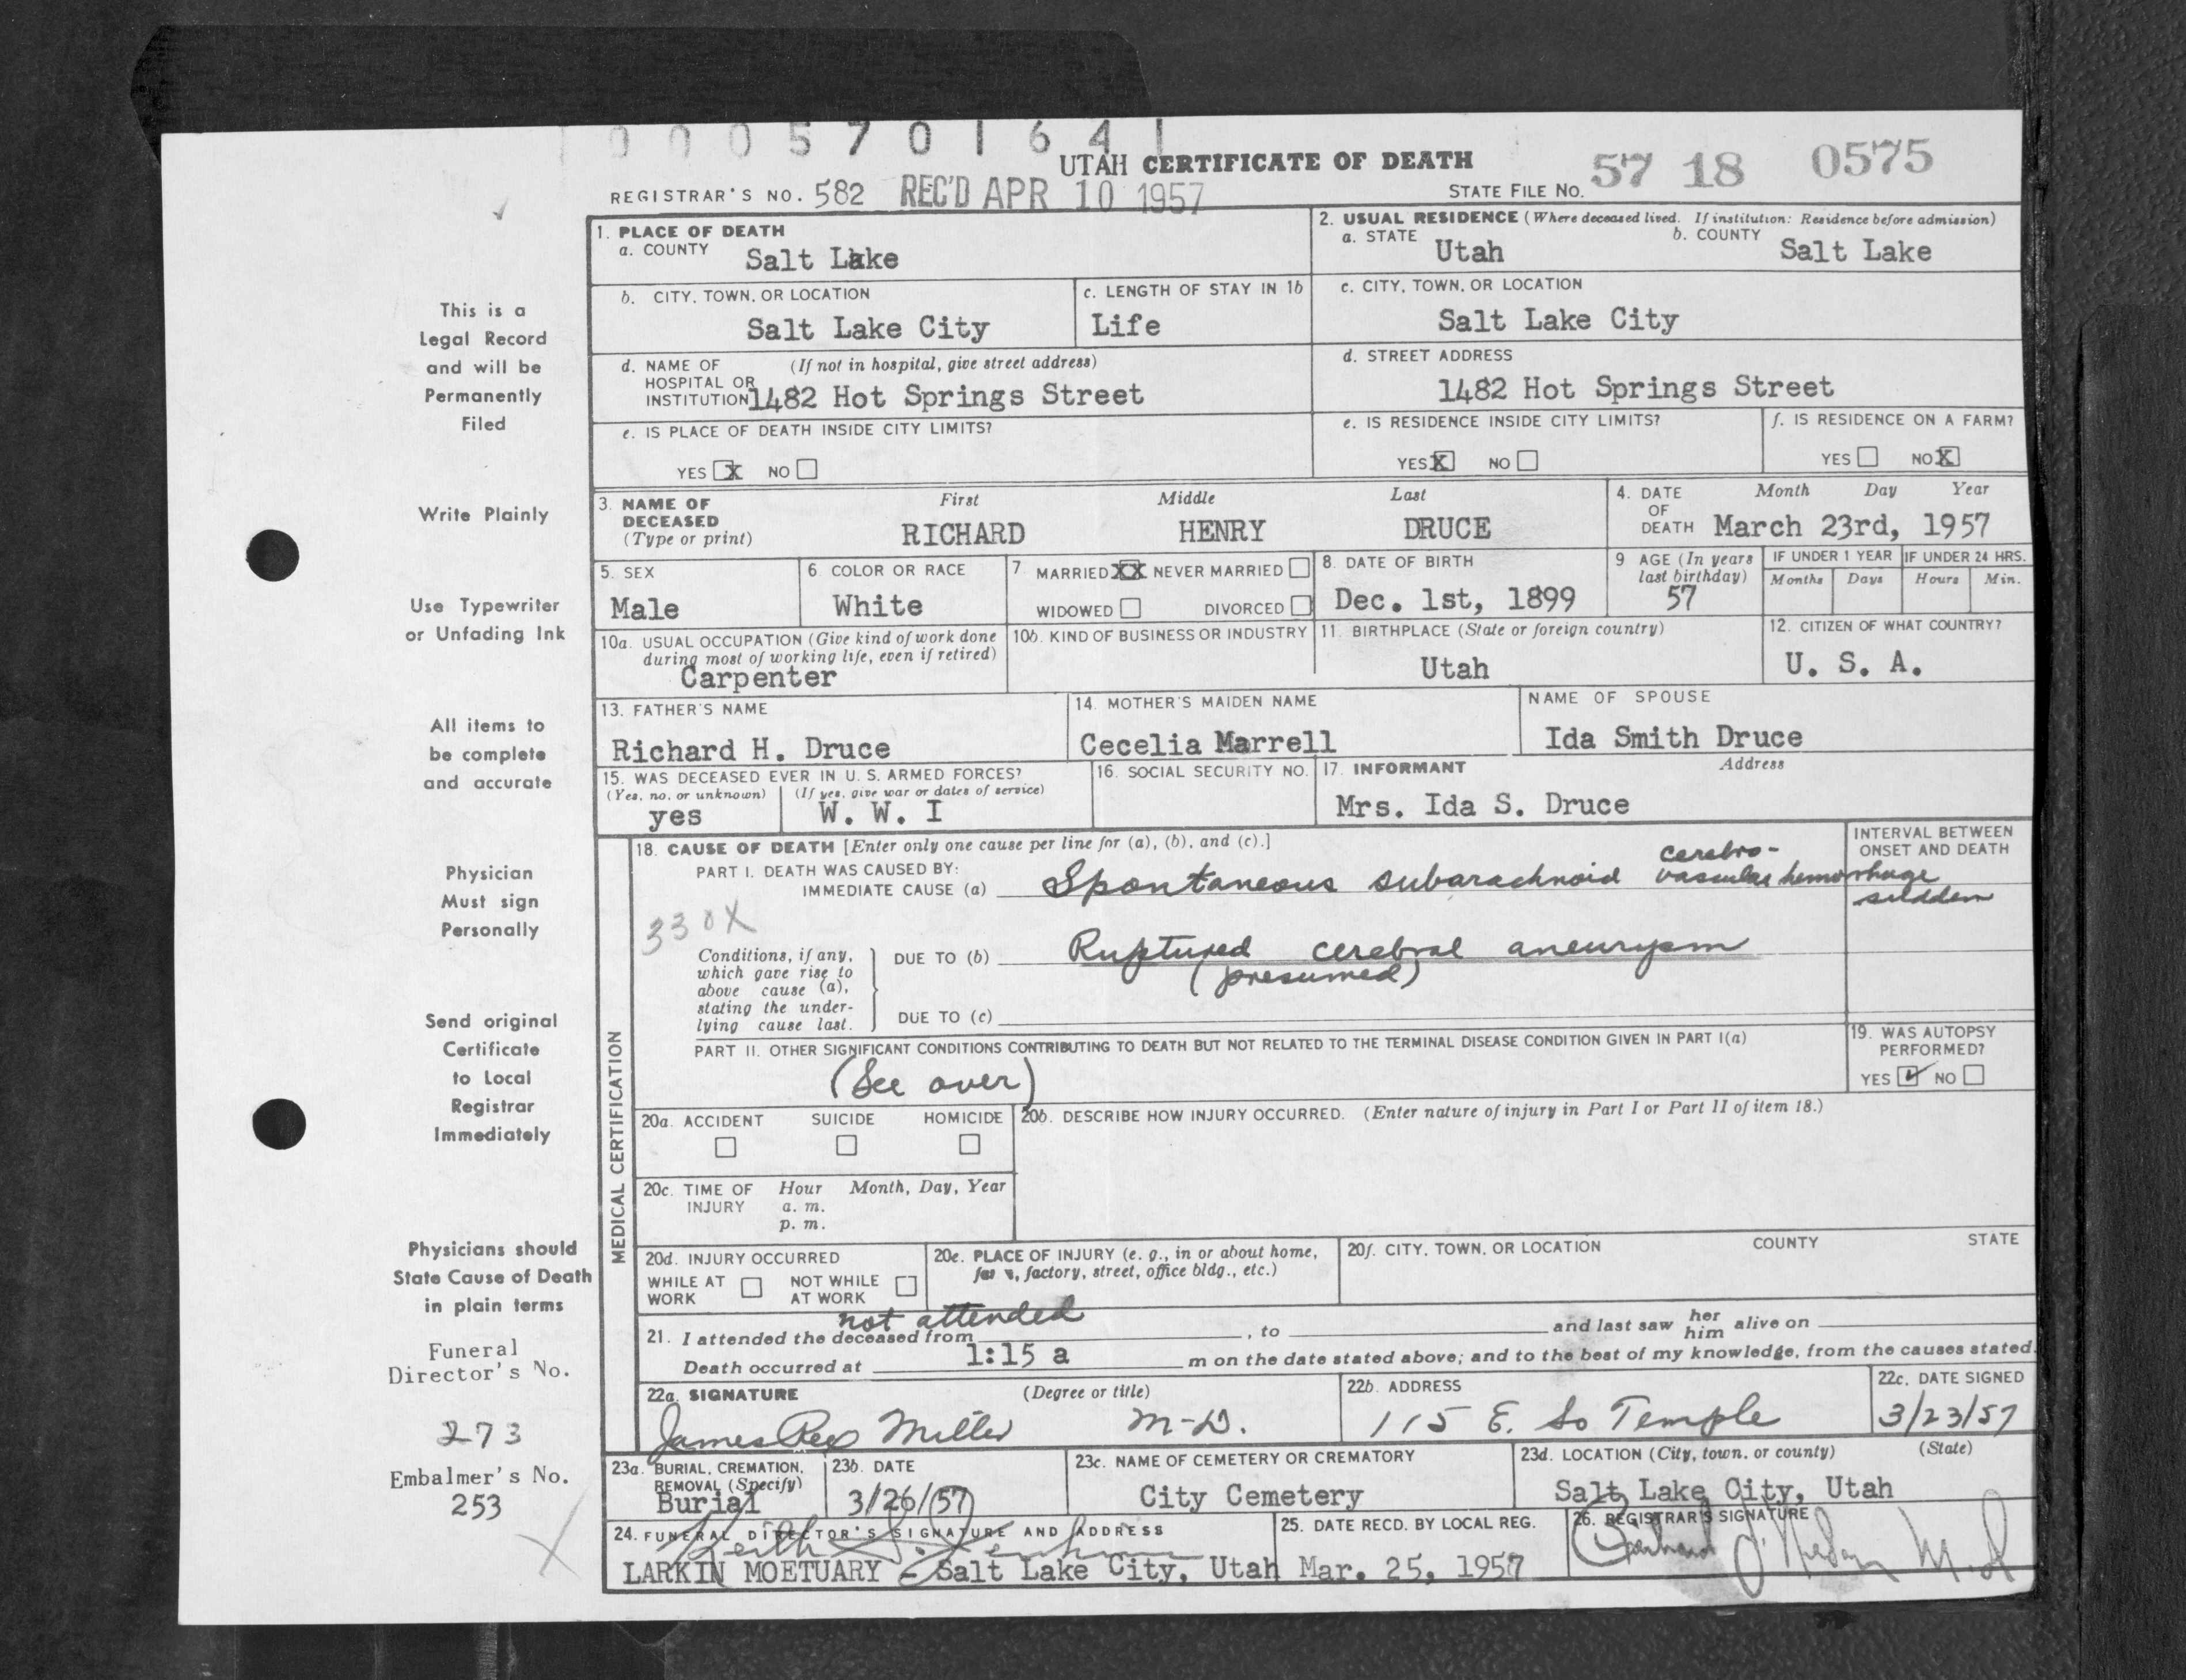 0 0 0 5 7 0 1 6 4 1
UTAH CERTIFICATE OF DEATH
REGISTRAR'S NO. 582 REC'D APR 10 1957 STATE FILE NO. 57 18 0575
1. PLACE OF DEATH
a. COUNTY Salt Lake
2. USUAL RESIDENCE (Where deceased lived. If institution: Residence before admission)
a. STATE Utah b. COUNTY Salt Lake
b. CITY, TOWN, OR LOCATION Salt Lake City
c. LENGTH OF STAY IN 1b Life
c. CITY, TOWN, OR LOCATION
Salt Lake City
d. NAME OF (If not in hospital, give street address)
HOSPITAL OR
INSTITUTION 1482 Hot Springs Street
d. STREET ADDRESS
1482 Hot Springs Street
e. IS PLACE OF DEATH INSIDE CITY LIMITS?
YES X NO
e. IS RESIDENCE INSIDE CITY LIMITS?
YES X NO
f. IS RESIDENCE ON A FARM?
YES NO X
3. NAME OF DECEASED (Type or print)
First Middle Last
RICHARD HENRY DRUCE
4. DATE OF DEATH Month Day Year
March 23rd, 1957
5. SEX
Male
6. COLOR OR RACE
White
7. MARRIED XX NEVER MARRIED
WIDOWED DIVORCED
8. DATE OF BIRTH
Dec. 1st, 1899
9. AGE (In years last birthday)
57
IF UNDER 1 YEAR IF UNDER 24 HRS.
Months Days Hours Min.
10a. USUAL OCCUPATION (Give kind of work done
during most of working life, even if retired)
Carpenter
10b. KIND OF BUSINESS OR INDUSTRY
11. BIRTHPLACE (State or foreign country)
Utah
12. CITIZEN OF WHAT COUNTRY?
U. S. A.
13. FATHER'S NAME
Richard H. Druce
14. MOTHER'S MAIDEN NAME
Cecelia Marrell
NAME OF SPOUSE
Ida Smith Druce
15. WAS DECEASED EVER IN U. S. ARMED FORCES?
(Yes, no, or unknown) (If yes, give war or dates of service)
yes W. W. I
16. SOCIAL SECURITY NO.
17. INFORMANT Address
Mrs. Ida S. Druce
MEDICAL CERTIFICATION
18. CAUSE OF DEATH [Enter only one cause per line for (a), (b), and (c).]
PART I. DEATH WAS CAUSED BY:
IMMEDIATE CAUSE (a) Spontaneous subarachnoid cerebro-
vascular hemorrhage
INTERVAL BETWEEN
ONSET AND DEATH
sudden
330X
Conditions, if any,
which gave rise to
above cause (a),
stating the under-
lying cause last.
DUE TO (b) Ruptured cerebral aneurysm
(presumed)
DUE TO (c)
PART II. OTHER SIGNIFICANT CONDITIONS CONTRIBUTING TO DEATH BUT NOT RELATED TO THE TERMINAL DISEASE CONDITION GIVEN IN PART I(a)
(See over)
19. WAS AUTOPSY
PERFORMED?
YES ✓ NO
20a. ACCIDENT SUICIDE HOMICIDE
20b. DESCRIBE HOW INJURY OCCURRED. (Enter nature of injury in Part I or Part II of item 18.)
20c. TIME OF INJURY Hour Month, Day, Year
a. m.
p. m.
20d. INJURY OCCURRED
WHILE AT WORK NOT WHILE AT WORK
20e. PLACE OF INJURY (e. g., in or about home,
factory, street, office bldg., etc.)
20f. CITY, TOWN, OR LOCATION COUNTY STATE
not attended
21. I attended the deceased from , to and last saw her him alive on
Death occurred at 1:15 a m on the date stated above; and to the best of my knowledge, from the causes stated.
22a. SIGNATURE (Degree or title)
James Rex Miller M-D.
22b. ADDRESS
115 E. So Temple
22c. DATE SIGNED
3/23/57
23a. BURIAL, CREMATION,
REMOVAL (Specify)
Burial
23b. DATE
3/26/57
23c. NAME OF CEMETERY OR CREMATORY
City Cemetery
23d. LOCATION (City, town, or county) (State)
Salt Lake City, Utah
24. FUNERAL DIRECTOR'S SIGNATURE AND ADDRESS
Keith S.
LARKIN MOETUARY - Salt Lake City, Utah
25. DATE RECD. BY LOCAL REG.
Mar. 25, 1957
26. REGISTRAR'S SIGNATURE
M.D
This is a
Legal Record
and will be
Permanently
Filed
Write Plainly
Use Typewriter
or Unfading Ink
All items to
be complete
and accurate
Physician
Must sign
Personally
Send original
Certificate
to Local
Registrar
Immediately
Physicians should
State Cause of Death
in plain terms
Funeral
Director's No.
273
Embalmer's No.
253